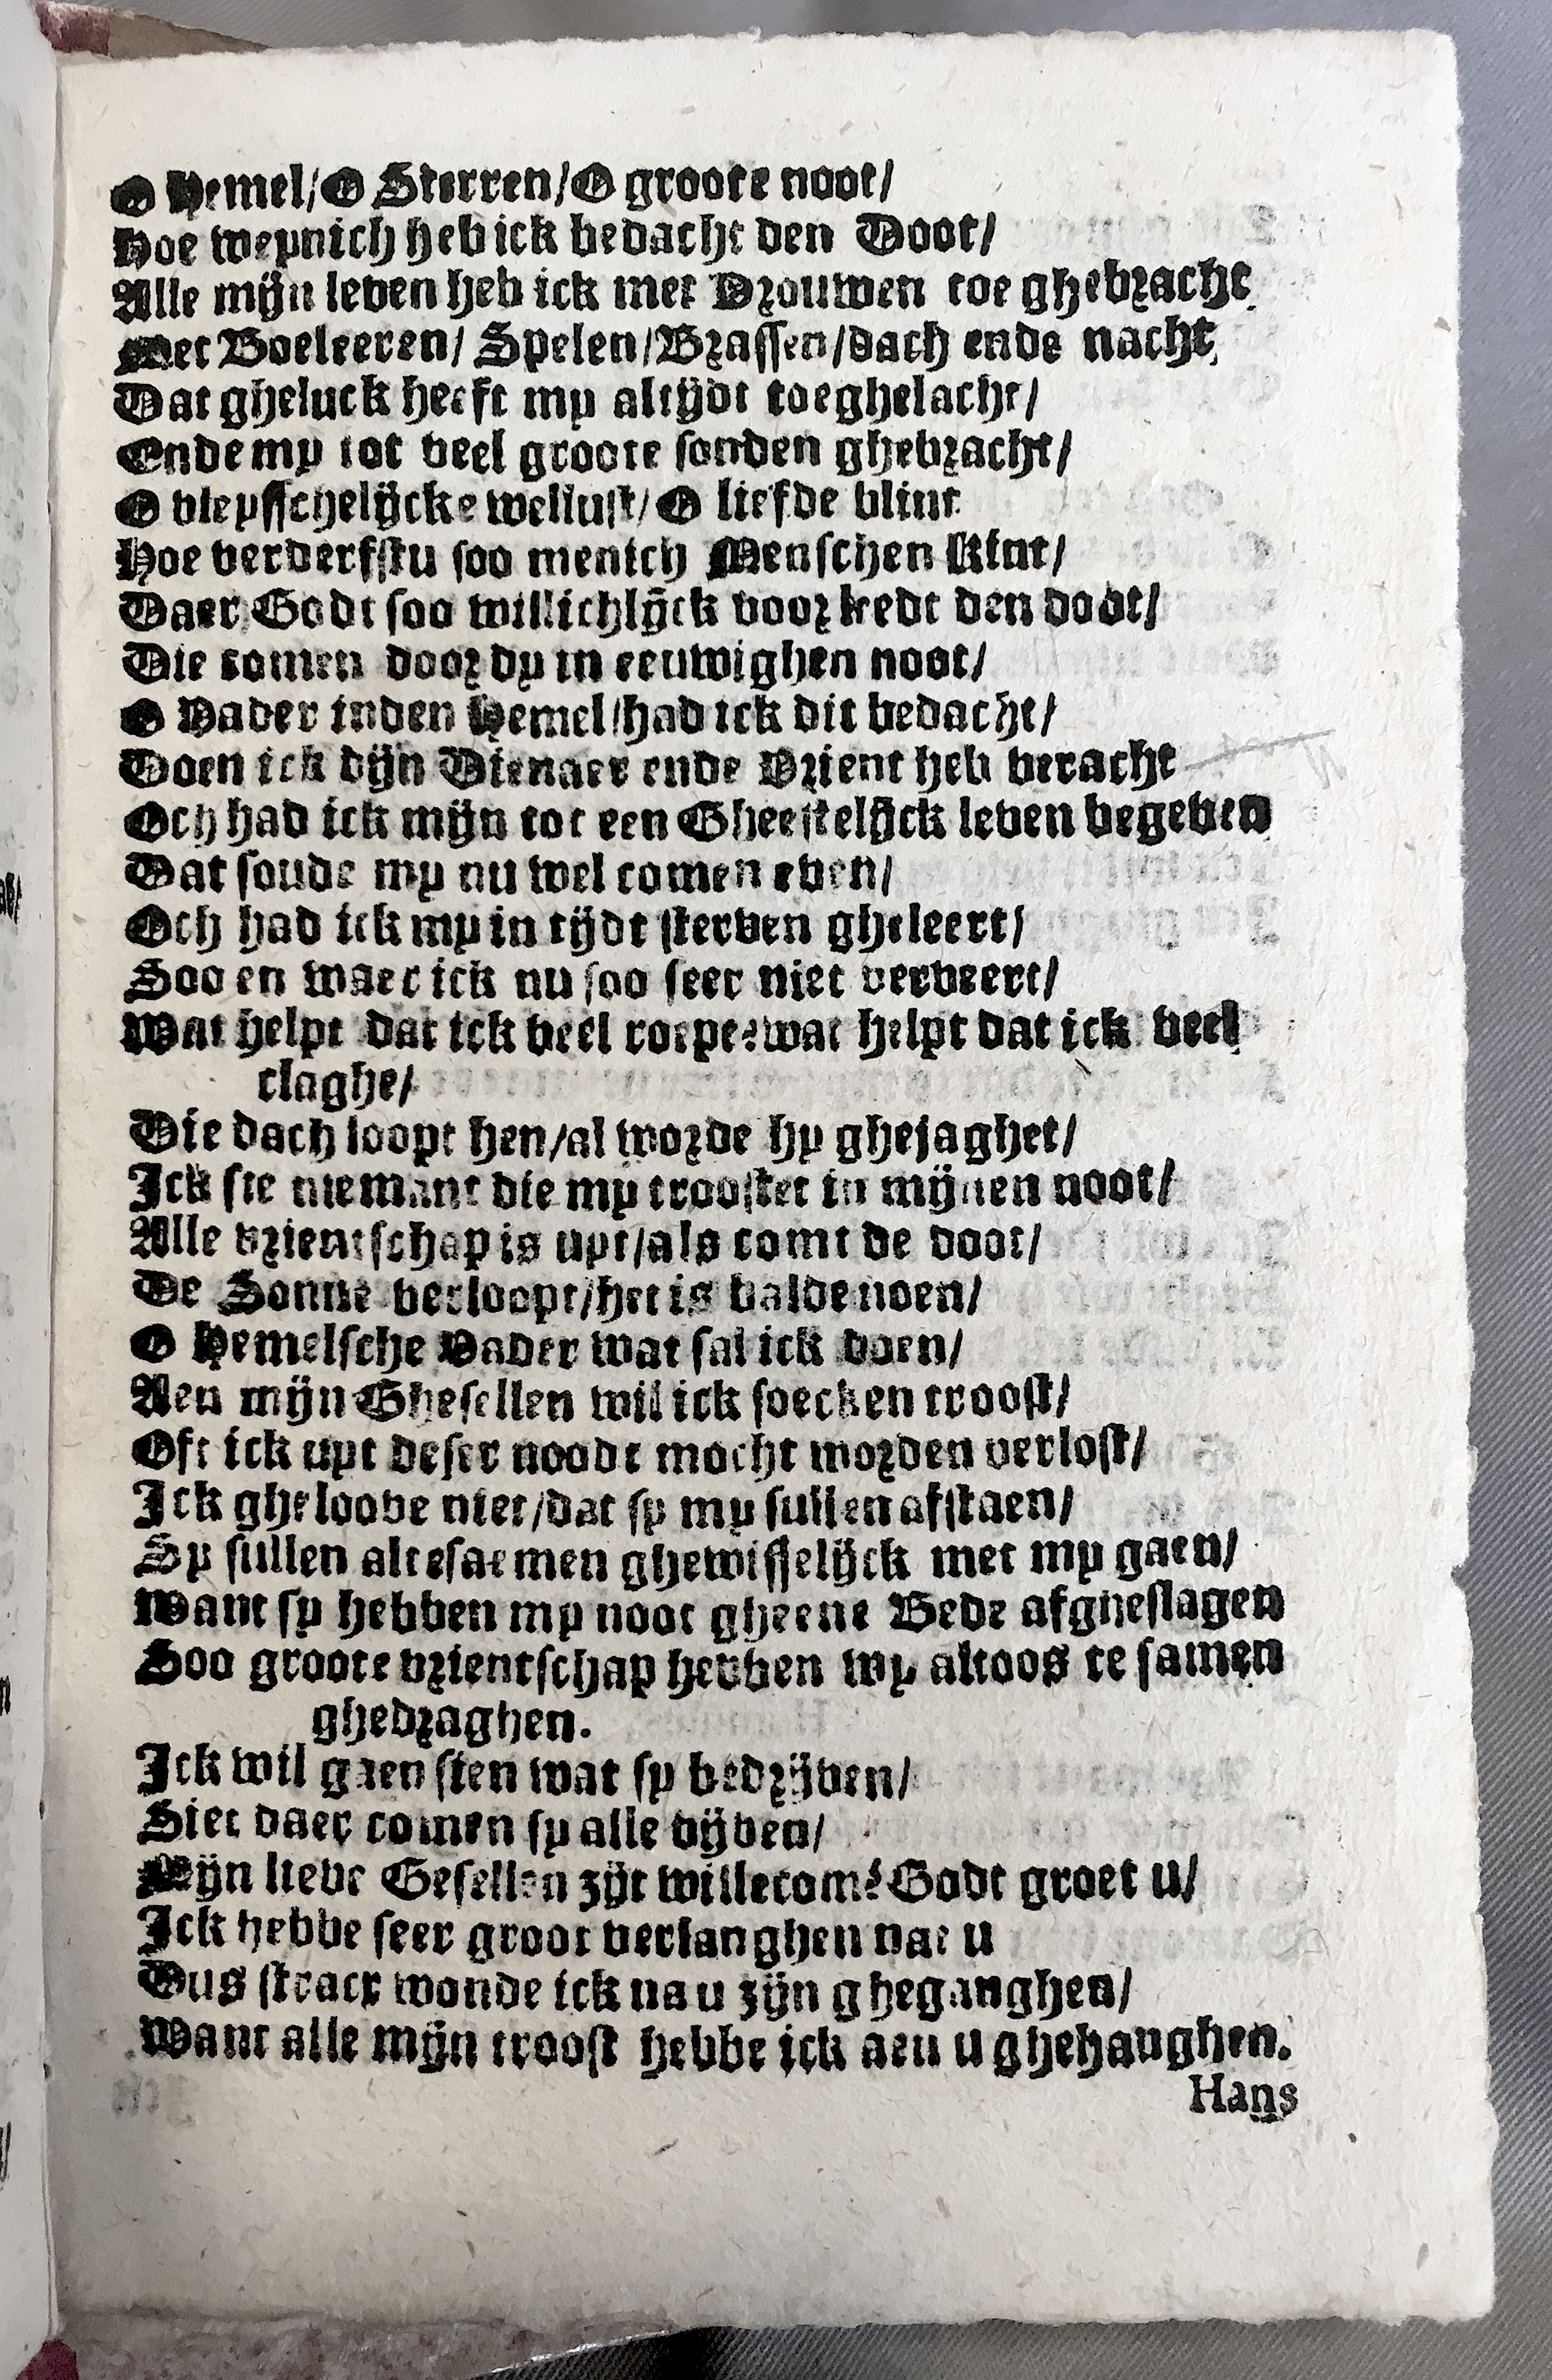 O Hemel/O Sterren/O groote noot/
Hoe weynich heb ick bedacht den Doot/
Alle mijn leven heb ick met Vrouwen toe ghebracht
Met Boeleeren/ Spelen/Brassen/dach ende nacht,
Dat gheluck heeft my altijdt toeghelacht/
Ende my tot veel groote sonden ghebracht/
O vleysschelijcke wellust/O liefde blint
Hoe verderfstu soo menich Menschen Kint/
Daer Godt soo willichlijck voor leedt den doot/
Die comen door dy in eeuwighen noot/
O Vader inden Hemel/had ick dit bedacht/
Doen ick dijn Dienaer ende Vrient heb veracht
Och had ick mijn tot een Gheestelijck leven begeven
Dat soude my nu wel comen even/
Och had ick my in tijdt sterven gheleert/
Soo en waer ick nu soo seer niet verveert/
Wat helpt dat ick veel roepe: wat helpt dat ick veel
claghe/
Die dach loopt hen/al worde hy ghejaghet/
Ick sie niemant die my troostet in mijnen noot/
Alle vrientschap is uyt/als comt de doot/
De Sonne verloopt/het is balde noen/
O Hemelsche Vader wat sal ick doen/
Aen mijn Ghesellen wil ick soecken troost/
Oft ick uyt deser noodt mocht worden verlost/
Ick gheloove niet/dat sy my sullen afstaen/
Sy sullen altesaemen ghewisselijck met my gaen/
Want sy hebben my noot gheene Bede afgheslagen
Soo groote vrientschap hebben wy altoos te samen
ghedraghen.
Ick wil gaen sien wat sy bedrijven/
Siet daer comen sy alle vijven/
Mijn lieve Gesellen zijt willecom? Godt groet u/
Ick hebbe seer groot verlanghen nae u
Dus stracx wonde ick na u zijn gheganghen/
Want alle mijn troost hebbe ick aen u ghehanghen.
Hans